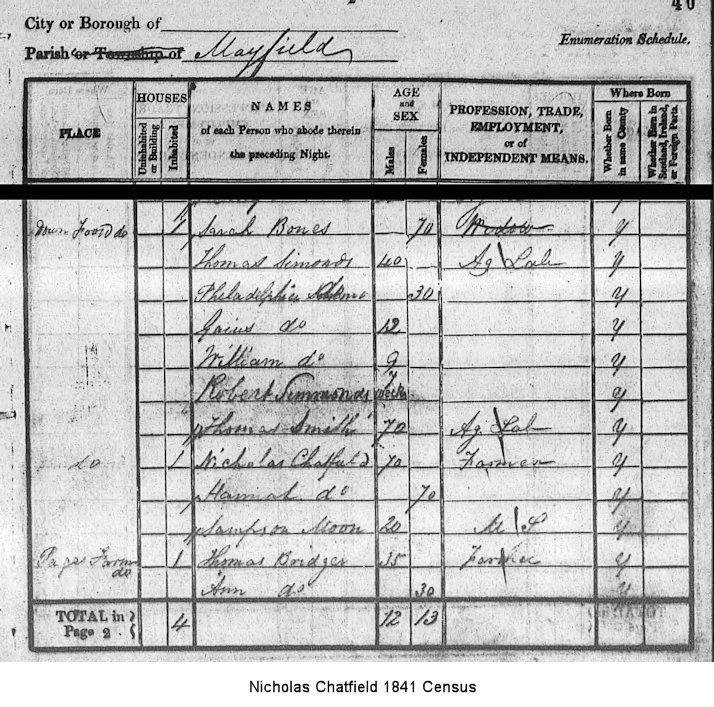 40
City or Borough of
Parish or Township of Mayfield
Enumeration Schedule.
PLACE
HOUSES
Uninhabited or Building
Inhabited
NAMES
of each Person who abode therein
the preceding Night.
AGE
and
SEX
Males
Females
PROFESSION, TRADE,
EMPLOYMENT,
or of
INDEPENDENT MEANS.
Where Born
Whether Born in same County
Whether Born in Scotland, Ireland, or Foreign Parts.
do 1 Sarah Bones 70 Widow y
Thomas Simonds 40 Ag Lab y
Philadelphia 30 y
Gaius do 12 y
William do 9 y
Robert Simmonds 7 weeks y
Thomas Smith 70 Ag Lab y
do 1 Nicholas Chatfield 70 Farmer y
Hannah do 70 y
Sampson Moon 20 M S y
Pages Farm do 1 Thomas Bridger 35 Farmer y
Ann do 30 y
TOTAL in Page 2 4 12 13
Nicholas Chatfield 1841 Census